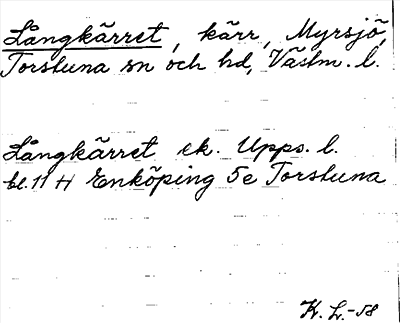 Långkärret, kärr, Myrsjö,
Torstuna sn och hd, Västm. l.
Långkärret ek. Upps. l.
bl. 11 H Enköping 5e Torstuna
K. L. -58